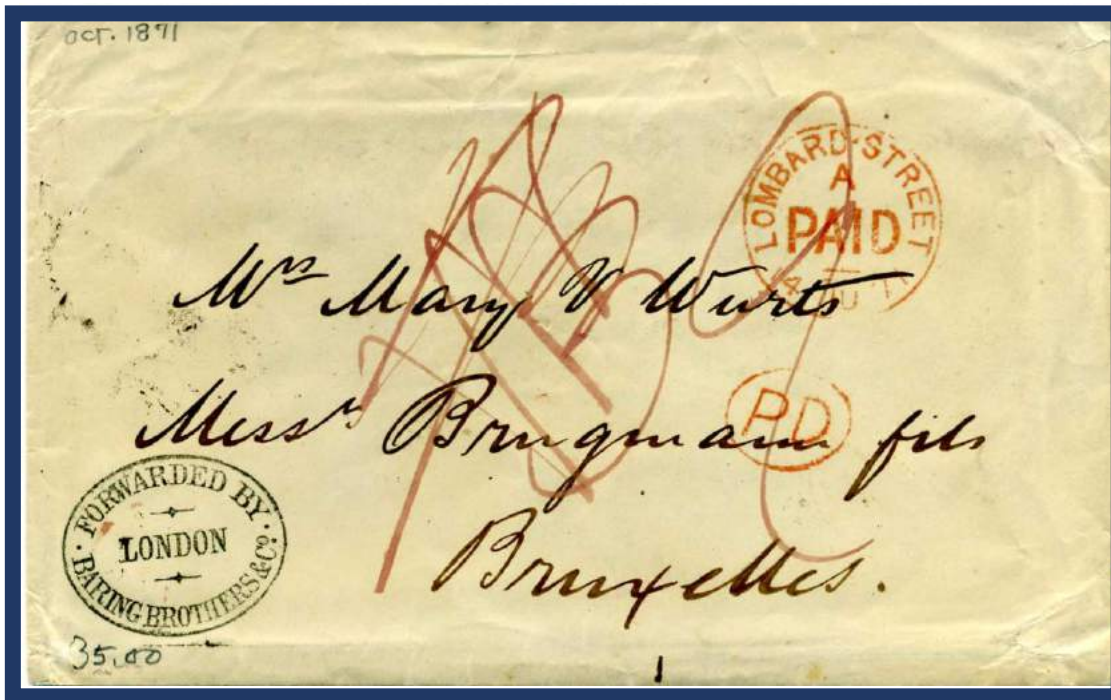 oct. 1871
LOMBARD·STREET
A
PAID
Mrs Mary V Wurts
Messrs Brugmann fils
PD
Bruxelles.
· FORWARDED BY ·
LONDON
BARING BROTHERS & Co.
35.00
1